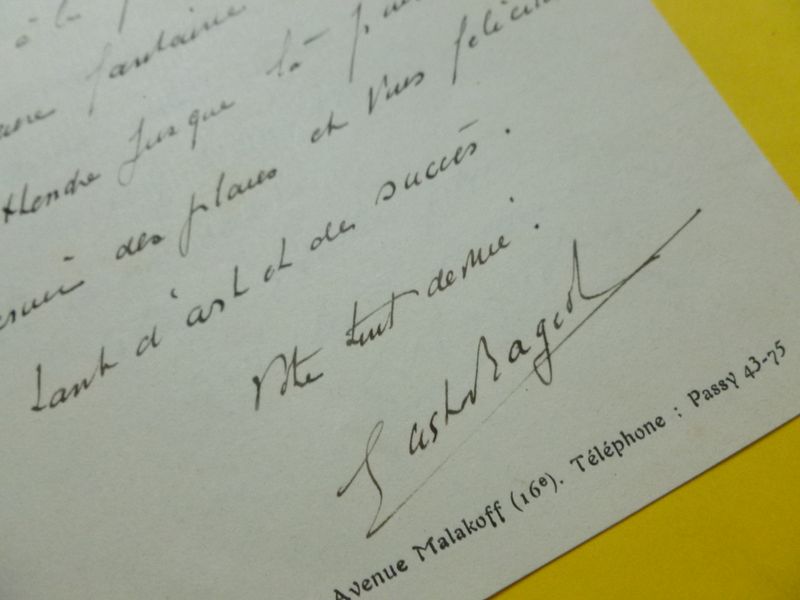 à la
fantaisie
attendre jusque là p
des places et vous félicite
tant d'art et de succès.
Votre tout dévoué.
Gaston Rageot
Avenue Malakoff (16e). Téléphone : Passy 43-75